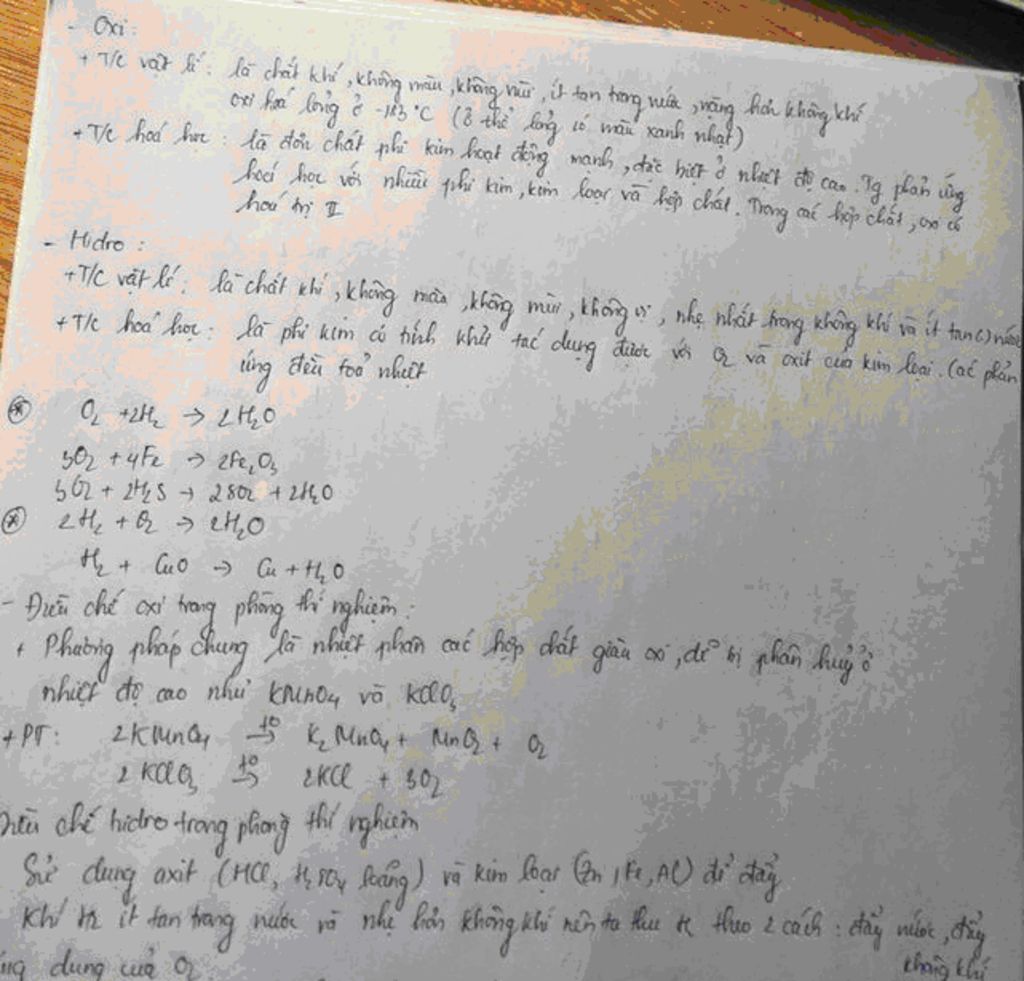 - Oxi:
+ T/c vật lí: là chất khí, không màu, không mùi, ít tan trong nước, nặng hơn không khí
oxi hoá lỏng ở -183 °C (ở thể lỏng có màu xanh nhạt)
+ T/c hoá học: là đơn chất phi kim hoạt động mạnh, đặc biệt ở nhiệt độ cao. Tg phản ứng
hoá học với nhiều phi kim, kim loại và hợp chất. Trong các hợp chất, oxi có
hoá trị II
- Hidro:
+ T/c vật lí: là chất khí, không màu, không mùi, không vị, nhẹ nhất trong không khí và ít tan (-) nước
+ T/c hoá học: là phi kim có tính khử tác dụng được với O₂ và oxit của kim loại. (các phản
ứng đều toả nhiệt
* O₂ + 2H₂ → 2H₂O
3O₂ + 4Fe → 2Fe₂O₃
3O₂ + 2H₂S → 2SO₂ + 2H₂O
* 2H₂ + O₂ → 2H₂O
H₂ + CuO → Cu + H₂O
- Điều chế oxi trong phòng thí nghiệm:
+ Phương pháp chung là nhiệt phân các hợp chất giàu oxi, dễ bị phân huỷ ở
nhiệt độ cao như KMnO₄ và KClO₃
+ PT: 2KMnO₄ →(t°) K₂MnO₄ + MnO₂ + O₂
2KClO₃ →(t°) 2KCl + 3O₂
Điều chế hidro trong phòng thí nghiệm
Sử dụng axit (HCl, H₂SO₄ loãng) và kim loại (Zn, Fe, Al) để đẩy
Khí H₂ ít tan trong nước và nhẹ hơn không khí nên ta thu theo 2 cách: đẩy nước, đẩy
không khí
dụng của O₂